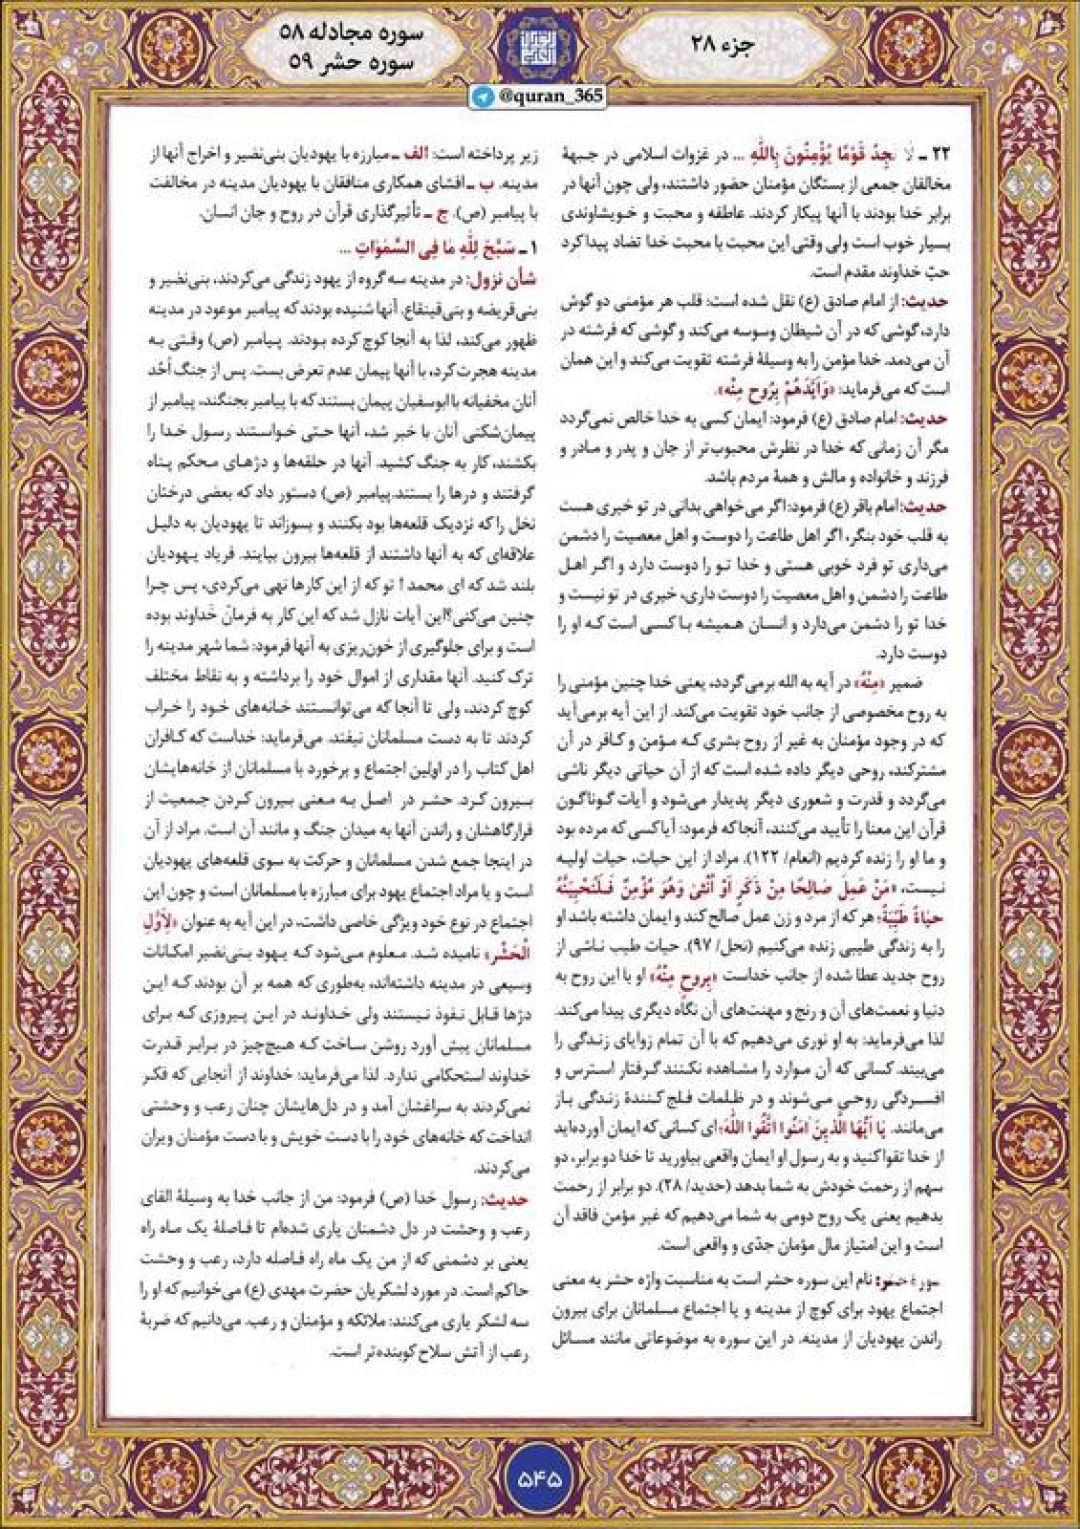 جزء ۲۸
سوره مجادله ۵۸
سوره حشر ۵۹
@quran_365
۲۲ ـ لا تَجِدُ قَوْمًا يُؤْمِنُونَ بِاللّٰهِ ... در غزوات اسلامی در جبههٔ
مخالفان جمعی از بستگان مؤمنان حضور داشتند، ولی چون آنها در
برابر خدا بودند با آنها پیکار کردند. عاطفه و محبت و خویشاوندی
بسیار خوب است ولی وقتی این محبت با محبت خدا تضاد پیدا کرد
حبّ خداوند مقدم است.
حدیث: از امام صادق (ع) نقل شده است: قلب هر مؤمنی دو گوش
دارد، گوشی که در آن شیطان وسوسه می‌کند و گوشی که فرشته در
آن می‌دمد. خدا مؤمن را به وسیلهٔ فرشته تقویت می‌کند و این همان
است که می‌فرماید: «وَاَيَّدَهُمْ بِرُوحٍ مِنْهُ».
حدیث: امام صادق (ع) فرمود: ایمان کسی به خدا خالص نمی‌گردد
مگر آن زمانی که خدا در نظرش محبوب‌تر از جان و پدر و مادر و
فرزند و خانواده و مالش و همهٔ مردم باشد.
حدیث: امام باقر (ع) فرمود: اگر می‌خواهی بدانی در تو خیری هست
به قلب خود بنگر، اگر اهل طاعت را دوست و اهل معصیت را دشمن
می‌داری تو فرد خوبی هستی و خدا تو را دوست دارد و اگر اهل
طاعت را دشمن و اهل معصیت را دوست داری، خیری در تو نیست و
خدا تو را دشمن می‌دارد و انسان همیشه با کسی است که او را
دوست دارد.
ضمیر «مِنْهُ» در آیه به الله برمی‌گردد، یعنی خدا چنین مؤمنی را
به روح مخصوصی از جانب خود تقویت می‌کند. از این آیه برمی‌آید
که در وجود مؤمنان به غیر از روح بشری که مؤمن و کافر در آن
مشترکند، روحی دیگر داده شده است که از آن حیاتی دیگر ناشی
می‌گردد و قدرت و شعوری دیگر پدیدار می‌شود و آیات گوناگون
قرآن این معنا را تأیید می‌کنند، آنجا که فرمود: آیا کسی که مرده بود
و ما او را زنده کردیم (انعام/ ۱۲۲). مراد از این حیات، حیات اولیه
نیست، «مَنْ عَمِلَ صَالِحًا مِنْ ذَكَرٍ اَوْ اُنْثٰى وَهُوَ مُؤْمِنٌ فَلَنُحْيِيَنَّهُ
حَيَاةً طَيِّبَةً؛ هر که از مرد و زن عمل صالح کند و ایمان داشته باشد او
را به زندگی طیبی زنده می‌کنیم (نحل/ ۹۷). حیات طیب ناشی از
روح جدید عطا شده از جانب خداست «بِروحٍ مِنْهُ» او با این روح به
دنیا و نعمت‌های آن و رنج و مهنت‌های آن نگاه دیگری پیدا می‌کند.
لذا می‌فرماید: به او نوری می‌دهیم که با آن تمام زوایای زندگی را
می‌بیند. کسانی که آن موارد را مشاهده نکنند گرفتار استرس و
افسردگی روحی می‌شوند و در ظلمات فلج کنندهٔ زندگی باز
می‌مانند. يَا اَيُّهَا الَّذِينَ آمَنُوا اتَّقُوا اللّٰهَ؛ ای کسانی که ایمان آورده‌اید
از خدا تقوا کنید و به رسول او ایمان واقعی بیاورید تا خدا دو برابر، دو
سهم از رحمت خودش به شما بدهد (حدید/ ۲۸). دو برابر از رحمت
بدهیم یعنی یک روح دومی به شما می‌دهیم که غیر مؤمن فاقد آن
است و این امتیاز مال مؤمان جدّی و واقعی است.
سورهٔ حشر: نام این سوره حشر است به مناسبت واژه حشر به معنی
اجتماع یهود برای کوچ از مدینه و یا اجتماع مسلمانان برای بیرون
راندن یهودیان از مدینه. در این سوره به موضوعاتی مانند مسائل
زیر پرداخته است: الف ـ مبارزه با یهودیان بنی‌نضیر و اخراج آنها از
مدینه. ب ـ افشای همکاری منافقان با یهودیان مدینه در مخالفت
با پیامبر (ص). ج ـ تأثیرگذاری قرآن در روح و جان انسان.
۱ ـ سَبَّحَ لِلّٰهِ مَا فِى السَّمٰوَاتِ ...
شأن نزول: در مدینه سه گروه از یهود زندگی می‌کردند، بنی‌نضیر و
بنی‌قریضه و بنی‌قینقاع. آنها شنیده بودند که پیامبر موعود در مدینه
ظهور می‌کند، لذا به آنجا کوچ کرده بودند. پیامبر (ص) وقتی به
مدینه هجرت کرد، با آنها پیمان عدم تعرض بست. پس از جنگ اُحُد
آنان مخفیانه با ابوسفیان پیمان بستند که با پیامبر بجنگند، پیامبر از
پیمان‌شکنی آنان با خبر شد، آنها حتی خواستند رسول خدا را
بکشند، کار به جنگ کشید. آنها در حلقه‌ها و دژهای محکم پناه
گرفتند و درها را بستند. پیامبر (ص) دستور داد که بعضی درختان
نخل را که نزدیک قلعه‌ها بود بکنند و بسوزاند تا یهودیان به دلیل
علاقه‌ای که به آنها داشتند از قلعه‌ها بیرون بیایند. فریاد یهودیان
بلند شد که ای محمد ! تو که از این کارها نهی می‌کردی، پس چرا
چنین می‌کنی؟! این آیات نازل شد که این کار به فرمان خداوند بوده
است و برای جلوگیری از خون‌ریزی به آنها فرمود: شما شهر مدینه را
ترک کنید. آنها مقداری از اموال خود را برداشته و به نقاط مختلف
کوچ کردند، ولی تا آنجا که می‌توانستند خانه‌های خود را خراب
کردند تا به دست مسلمانان نیفتد. می‌فرماید: خداست که کافران
اهل کتاب را در اولین اجتماع و برخورد با مسلمانان از خانه‌هایشان
بیرون کرد. حشر در اصل به معنی بیرون کردن جمعیت از
قرارگاهشان و راندن آنها به میدان جنگ و مانند آن است. مراد از آن
در اینجا جمع شدن مسلمانان و حرکت به سوی قلعه‌های یهودیان
است و یا مراد اجتماع یهود برای مبارزه با مسلمانان است و چون این
اجتماع در نوع خود ویژگی خاصی داشت، در این آیه به عنوان «لِاَوَّلِ
الْحَشْرِ» نامیده شد. معلوم می‌شود که یهود بنی‌نضیر امکانات
وسیعی در مدینه داشته‌اند، به‌طوری که همه بر آن بودند که این
دژها قابل نفوذ نیستند ولی خداوند در این پیروزی که برای
مسلمانان پیش آورد روشن ساخت که هیچ‌چیز در برابر قدرت
خداوند استحکامی ندارد. لذا می‌فرماید: خداوند از آنجایی که فکر
نمی‌کردند به سراغشان آمد و در دل‌هایشان چنان رعب و وحشتی
انداخت که خانه‌های خود را با دست خویش و با دست مؤمنان ویران
می‌کردند.
حدیث: رسول خدا (ص) فرمود: من از جانب خدا به وسیلهٔ القای
رعب و وحشت در دل دشمنان یاری شده‌ام تا فاصلهٔ یک ماه راه
یعنی بر دشمنی که از من یک ماه راه فاصله دارد، رعب و وحشت
حاکم است. در مورد لشکریان حضرت مهدی (ع) می‌خوانیم که او را
سه لشکر یاری می‌کنند: ملائکه و مؤمنان و رعب. می‌دانیم که ضربهٔ
رعب از آتش سلاح کوبنده‌تر است.
۵۴۵